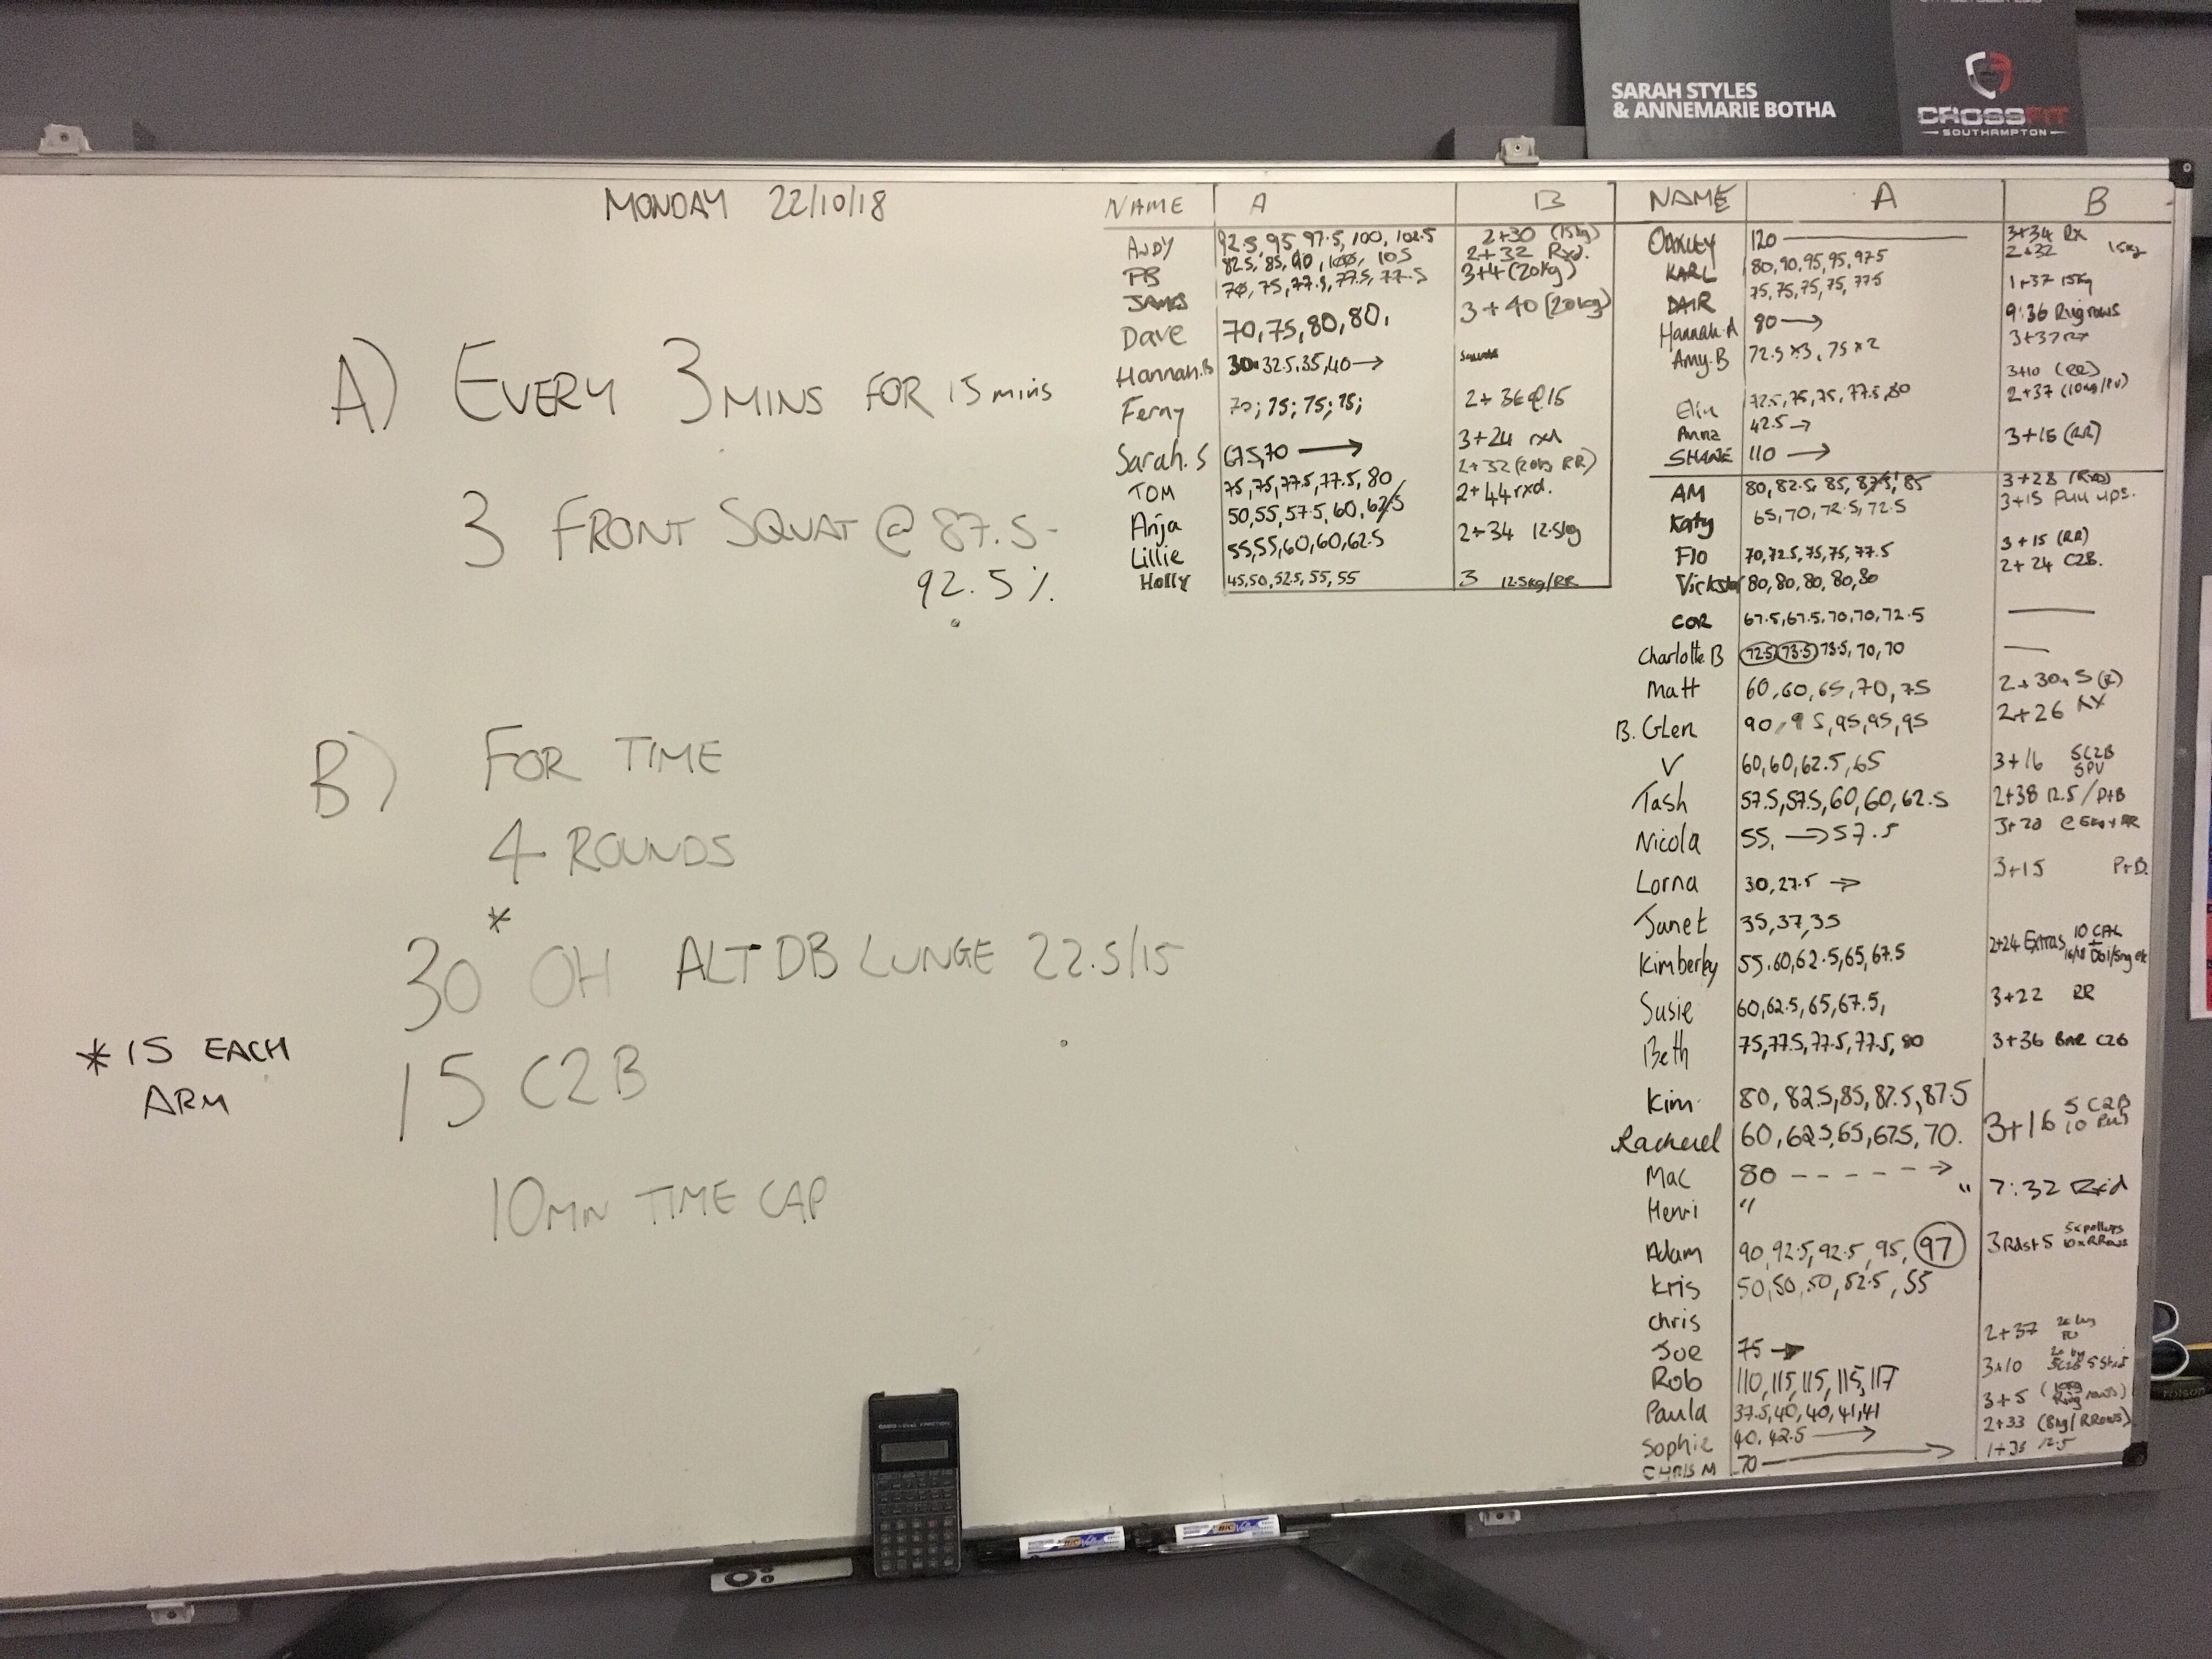 SARAH STYLES
& ANNEMARIE BOTHA
CROSSFIT
SOUTHAMPTON
MONDAY 22/10/18
A) EVERY 3 MINS FOR 15 mins
3 FRONT SQUAT @ 87.5-
92.5%
B) FOR TIME
4 ROUNDS
30* OH ALT DB LUNGE 22.5/15
* 15 EACH
ARM
15 C2B
10MIN TIME CAP
NAME A B
ANDY 92.5, 95, 97.5, 100, 102.5 2+30 (15kg)
PB 82.5, 85, 90, 100, 105 2+32 Rxd.
JAMES 70, 75, 77.5, 77.5, 77.5 3+4 (20kg)
Dave 70, 75, 80, 80, 3+40 (20kg)
Hannah.B 30, 32.5, 35, 40 →
Ferny 75; 75; 75; 2+36 @ 15
Sarah.S 67.5, 70 → 3+24 rxd
TOM 75, 75, 77.5, 77.5, 80 2+32 (20kg RR)
Anja 50, 55, 57.5, 60, 62.5 2+44 rxd.
Lillie 55, 55, 60, 60, 62.5 2+34 12.5kg
Holly 45, 50, 52.5, 55, 55 3 12.5kg/RR
NAME A B
OAKLEY 120 — 3+34 RX
KARL 80, 90, 95, 95, 97.5 2+32 15kg
DAIR 75, 75, 75, 75, 77.5 1+37 15kg
Hannah.A 80 → 9:36 Ring rows
Amy.B 72.5 x3, 75 x2 3+37 rx
Elin 72.5, 75, 75, 77.5, 80 3+10 (RR)
Anna 42.5 → 2+37 (10kg/PU)
SHANE 110 → 3+15 (RR)
AM 80, 82.5, 85, 87.5, 85 3+28 (Rxd)
Katy 65, 70, 72.5, 72.5 3+15 Pull ups.
Flo 70, 72.5, 75, 75, 77.5 3+15 (RR)
Vickster 80, 80, 80, 80, 80 2+24 C2B.
COR 67.5, 67.5, 70, 70, 72.5 —
Charlotte B 72.5, 73.5, 73.5, 70, 70 —
Matt 60, 60, 65, 70, 75 2+30
B. Glen 90, 95, 95, 95, 95 2+26 RX
V 60, 60, 62.5, 65 3+16 5C2B 5PU
Tash 57.5, 57.5, 60, 60, 62.5 2+38 12.5/P+B
Nicola 55, → 57.5 3+20
Lorna 30, 27.5 → 3+15 P+B.
Janet 35, 37, 35
Kimberley 55, 60, 62.5, 65, 67.5 2+24 Extras 10 CAL
Susie 60, 62.5, 65, 67.5, 3+22 RR
Beth 75, 77.5, 77.5, 77.5, 80 3+36 C2B
Kim 80, 82.5, 85, 87.5, 87.5
Rachael 60, 62.5, 65, 67.5, 70. 3+16 5 C2B 10
Mac 80 - - - - →
Henri " " 7:32 Rxd
Adam 90, 92.5, 92.5, 95, 97 3Rds+5 5xpullups 10xRRows
Kris 50, 50, 50, 52.5, 55
Chris
Joe 75 → 2+37
Rob 110, 115, 115, 115, 117 3+10
Paula 37.5, 40, 40, 41, 41 3+5 (10kg Ring rows)
Sophie 40, 42.5 → 2+33 (8kg/RRows)
CHRIS M 70 → 12.5